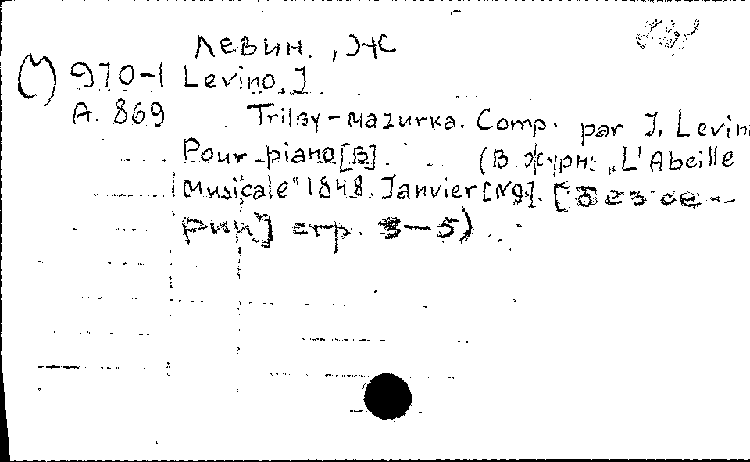 Левин., Ж
(М) 970-1 Levino, J.
А. 869 Trilby-mazurka. Comp. par J. Levin
Pour piano [В]. (В журн: „L'Abeille
Musicale" 1848. Janvier [№9]. [без се-
рии] стр. 3-5)